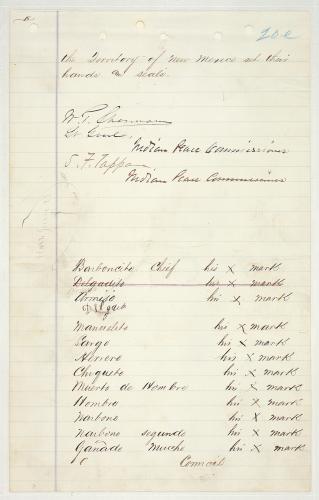 20 e
the Territory of New Mexico set their
hands and seals.
W. T. Sherman
Lt Genl,
Indian Peace Commissioner
S. F. Tappan
Indian Peace Commissioner
Barboncito Chief his X mark
Delgadito his X mark
Armijo his X mark
Delgado
Manuelito his X mark
Largo his X mark
Herrero his X mark
Chiqueto his X mark
Muerto de Hombro his X mark
Hombro his X mark
Narbono his X mark
Narbono segundo his X mark
Gañado Mucho his X mark
Council